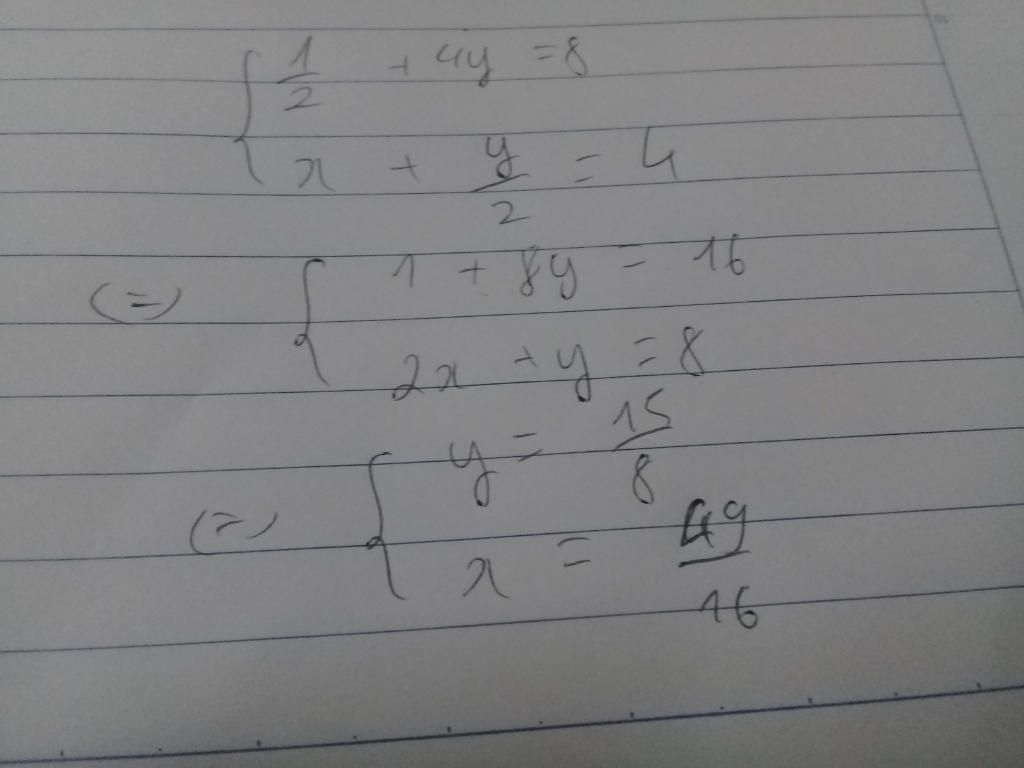 { 1/2 + 4y = 8
x + y/2 = 4
(=) { 1 + 8y = 16
2x + y = 8
(=) { y = 15/8
x = 49/16